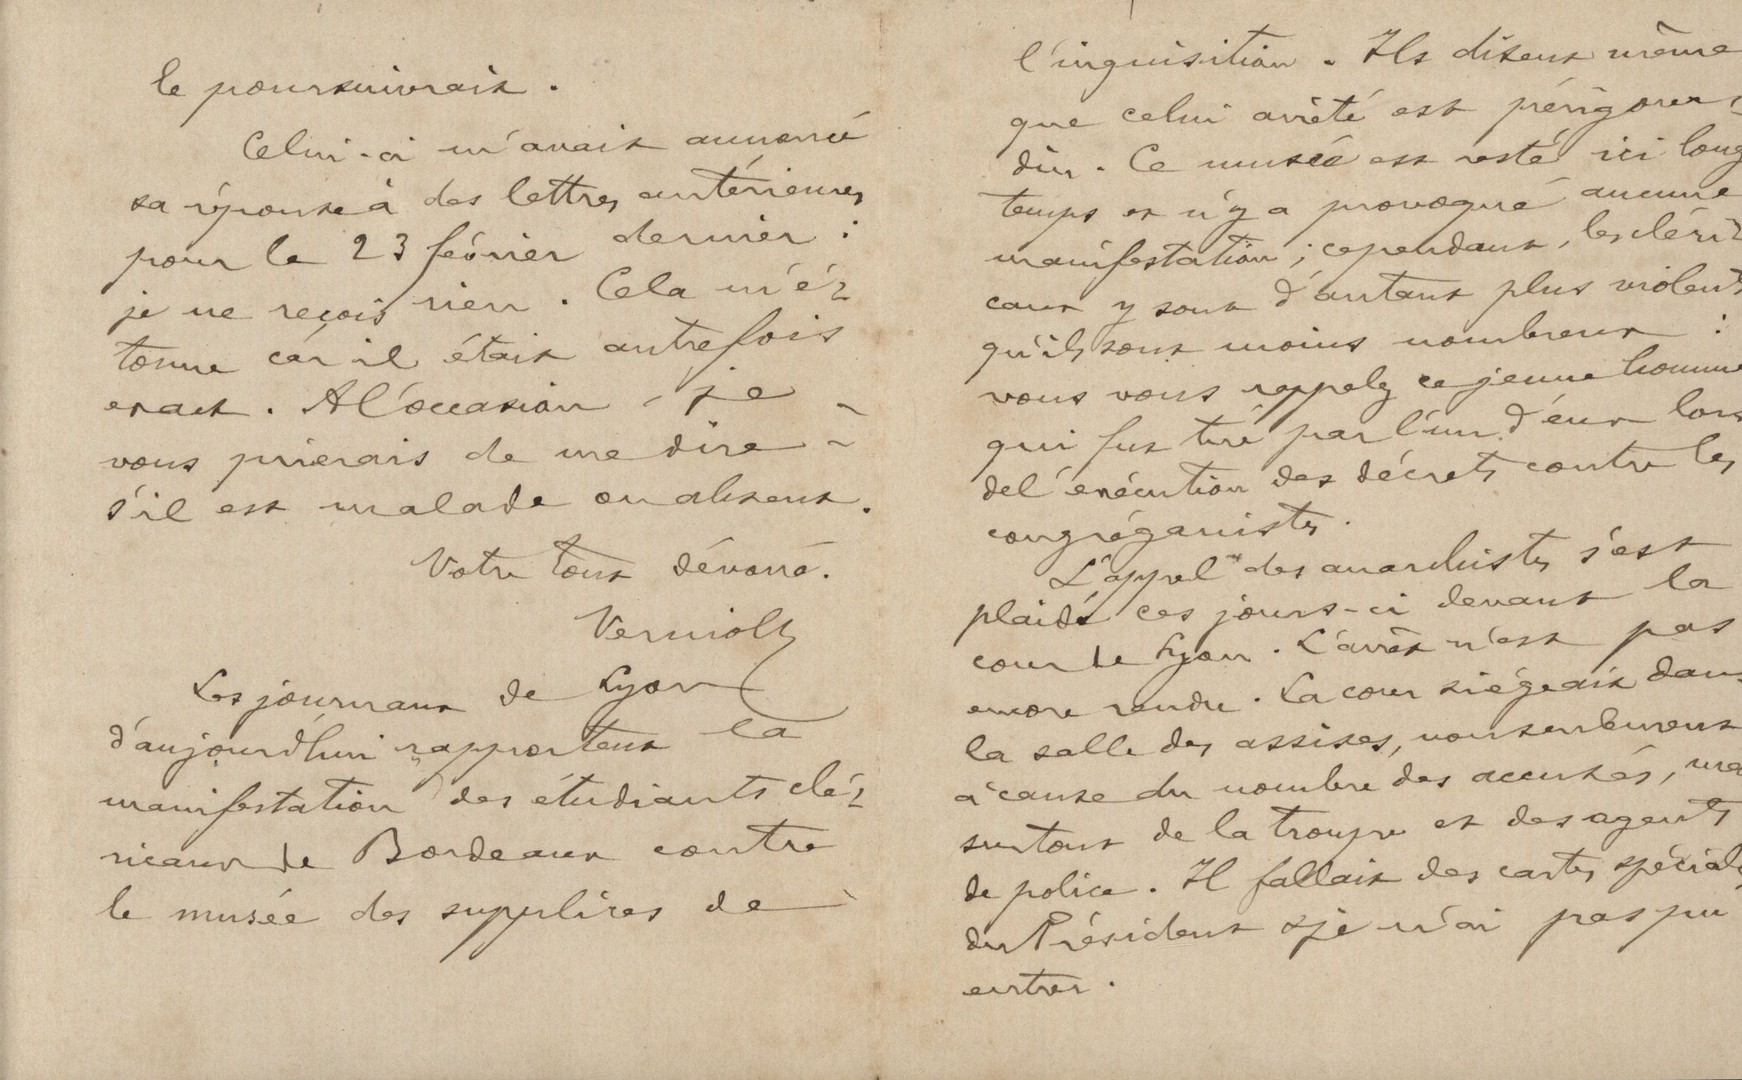 le poursuivrait.
Celui-ci m'avait annoncé
sa réponse à des lettres antérieures
pour le 23 février dernier :
je ne reçois rien. Cela m'é-
tonne car il était autrefois
exact. A l'occasion, je
vous prierais de me dire
s'il est malade ou absent.
Votre tout dévoué.
Les journaux de Lyon
d'aujourd'hui rapportent la
manifestation des étudiants clé-
ricaux de Bordeaux contre
le musée des supplices de
l'inquisition. Ils disent même
que celui arrêté est périgour-
din. Ce musée est resté ici long
temps et n'y a provoqué aucune
manifestation ; cependant, les cléri-
caux y sont d'autant plus violents
qu'ils sont moins nombreux :
vous vous rappelez ce jeune homme
qui fut tué par l'un d'eux lors
de l'exécution des décrets contre les
congréganistes.
L'appel des anarchistes s'est
plaidé ces jours-ci devant la
cour de Lyon. L'arrêt n'est pas
encore rendu. La cour siégeait dans
la salle des assises, non seulement
à cause du nombre des accusés, ma
surtout de la troupe et des agents
de police. Il fallait des cartes spéciales
du Président & je n'ai pas pu
entrer.